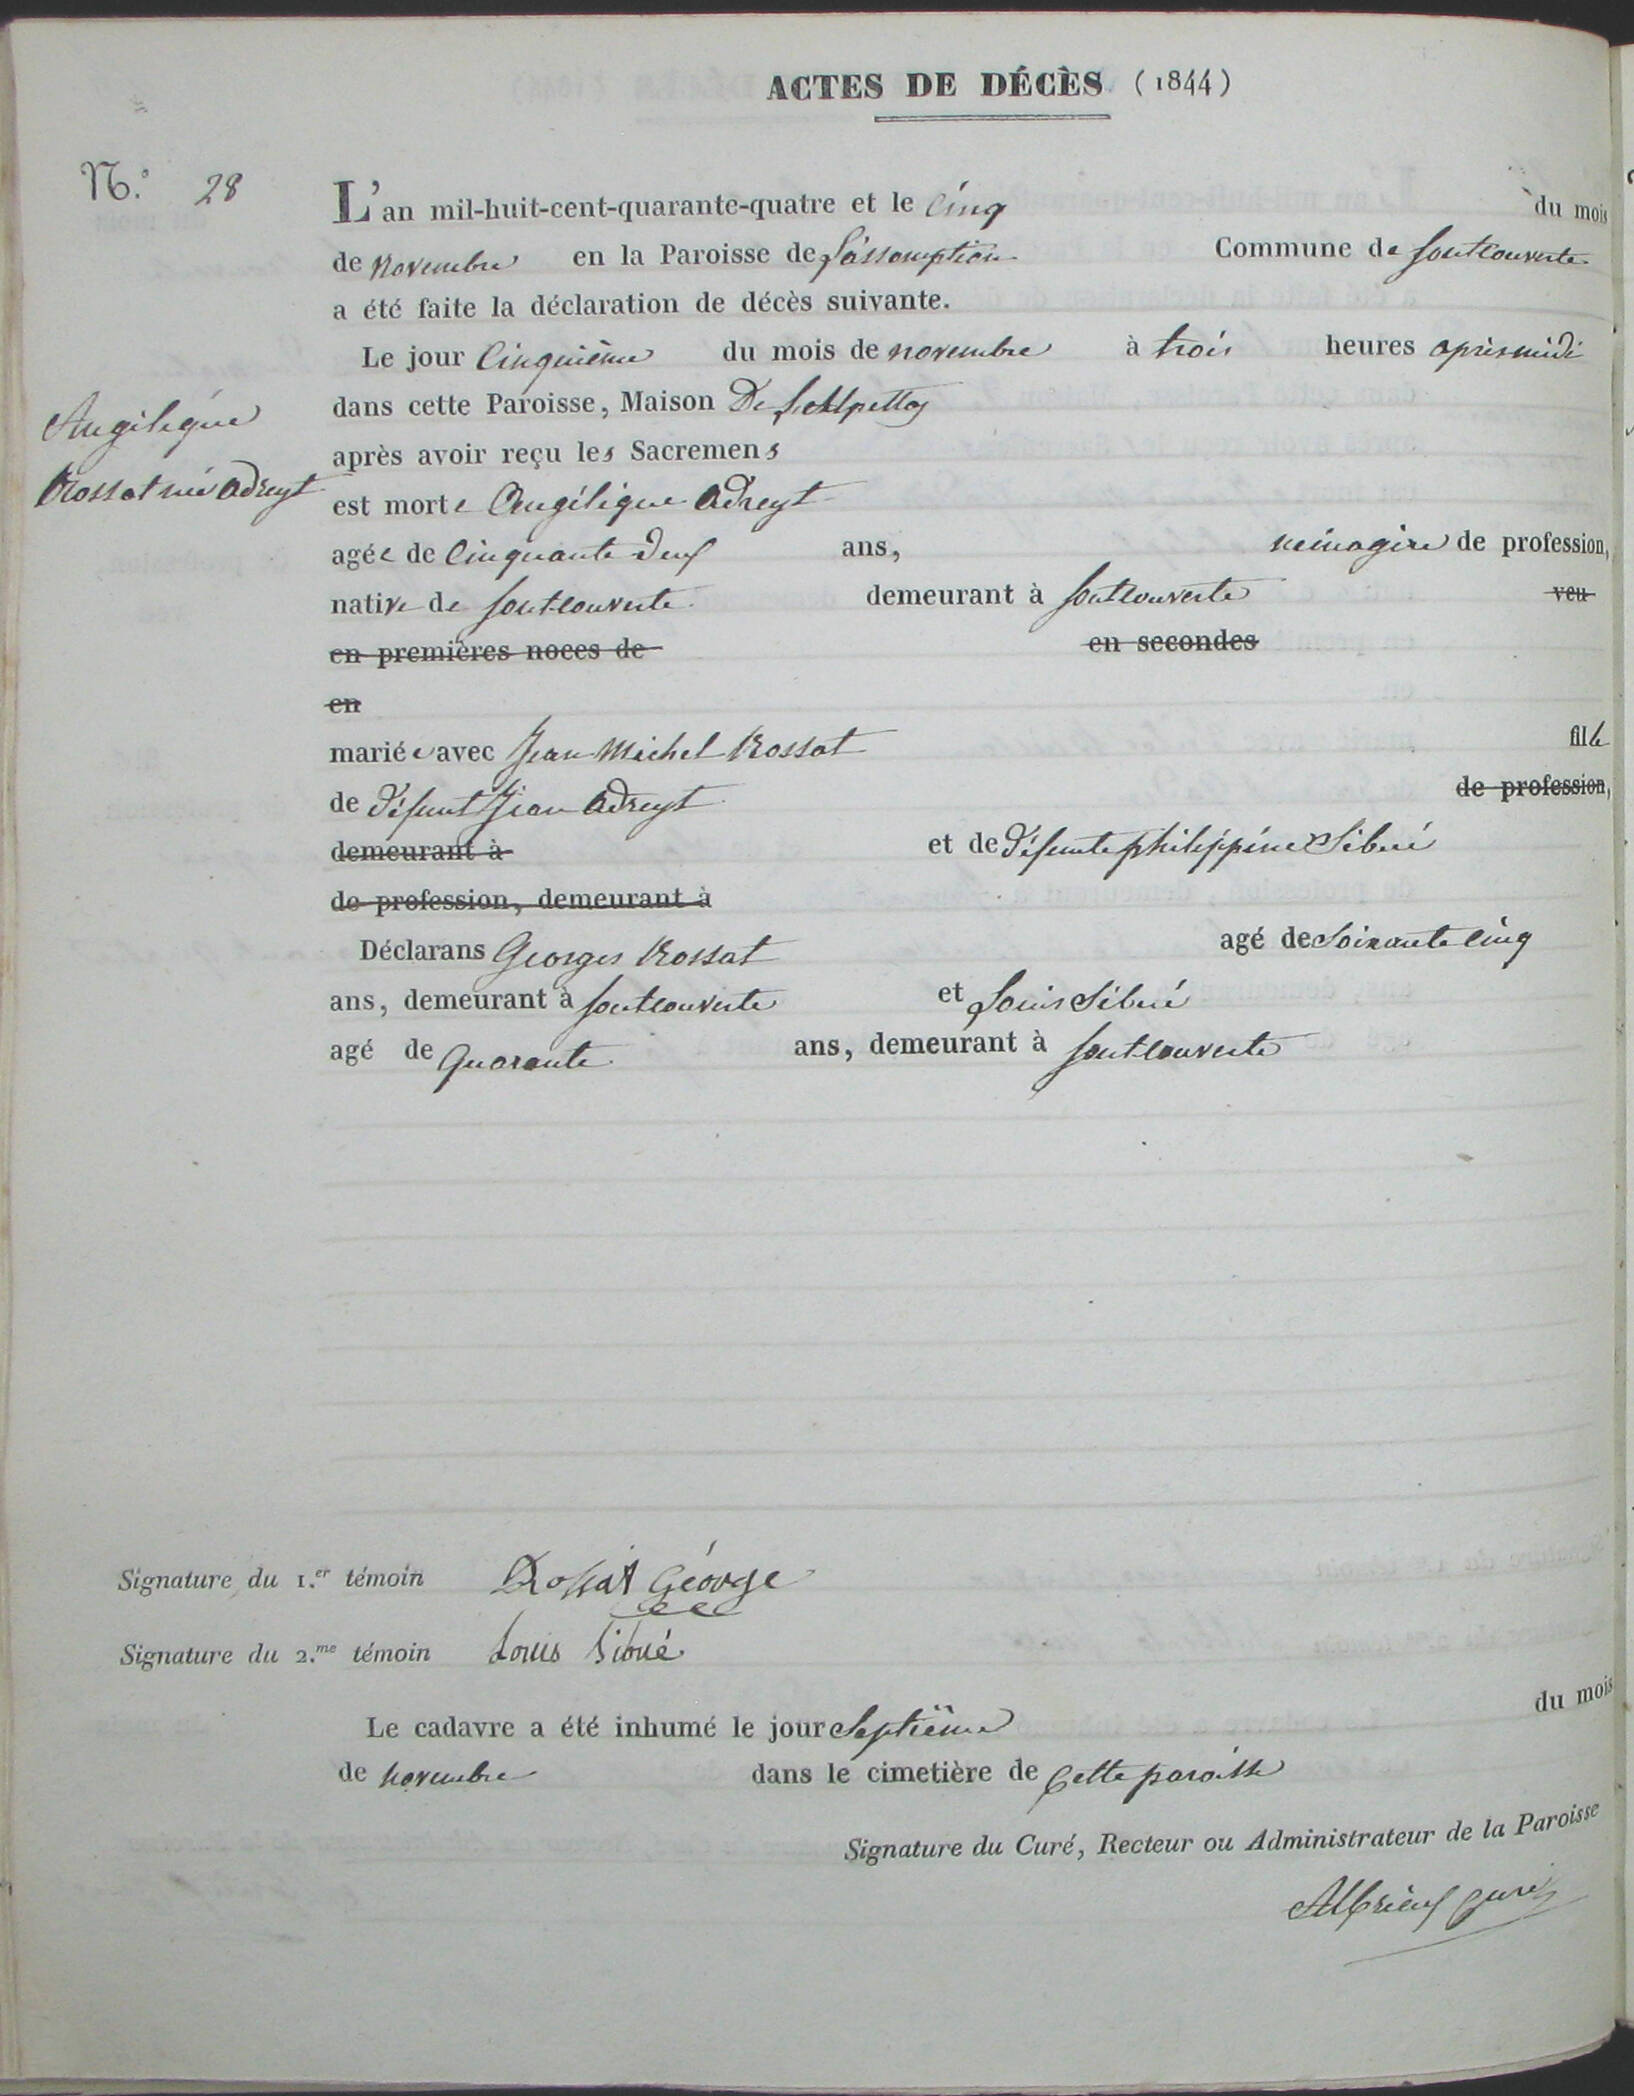 ACTES DE DÉCÈS (1844)
N.º 28
L'an mil-huit-cent-quarante-quatre et le cinq du mois
de novembre en la Paroisse de l'assomption Commune de fontcouverte
a été faite la déclaration de décès suivante.
Le jour cinquième du mois de novembre à trois heures aprèsmidi
dans cette Paroisse, Maison De
après avoir reçu les Sacremens
Angélique
Rossat née Adreyt
est morte Angélique Adreyt
agée de cinquante deux ans, ménagère de profession,
native de fontcouverte demeurant à fontcouverte veu
en premières noces de en secondes
en
mariée avec Jean Michel Rossat fille
de défunt Jean Adreyt de profession,
demeurant à et de défunte philippine Sibué
de profession, demeurant à
Déclarans Georges Rossat agé de soixante cinq
ans, demeurant à fontcouverte et Louis Sibué
agé de quarante ans, demeurant à fontcouverte
Signature du 1.er témoin Rossat George
Signature du 2.me témoin Louis Sibué
Le cadavre a été inhumé le jour septième du mois
de novembre dans le cimetière de cette paroisse
Signature du Curé, Recteur ou Administrateur de la Paroisse
curé